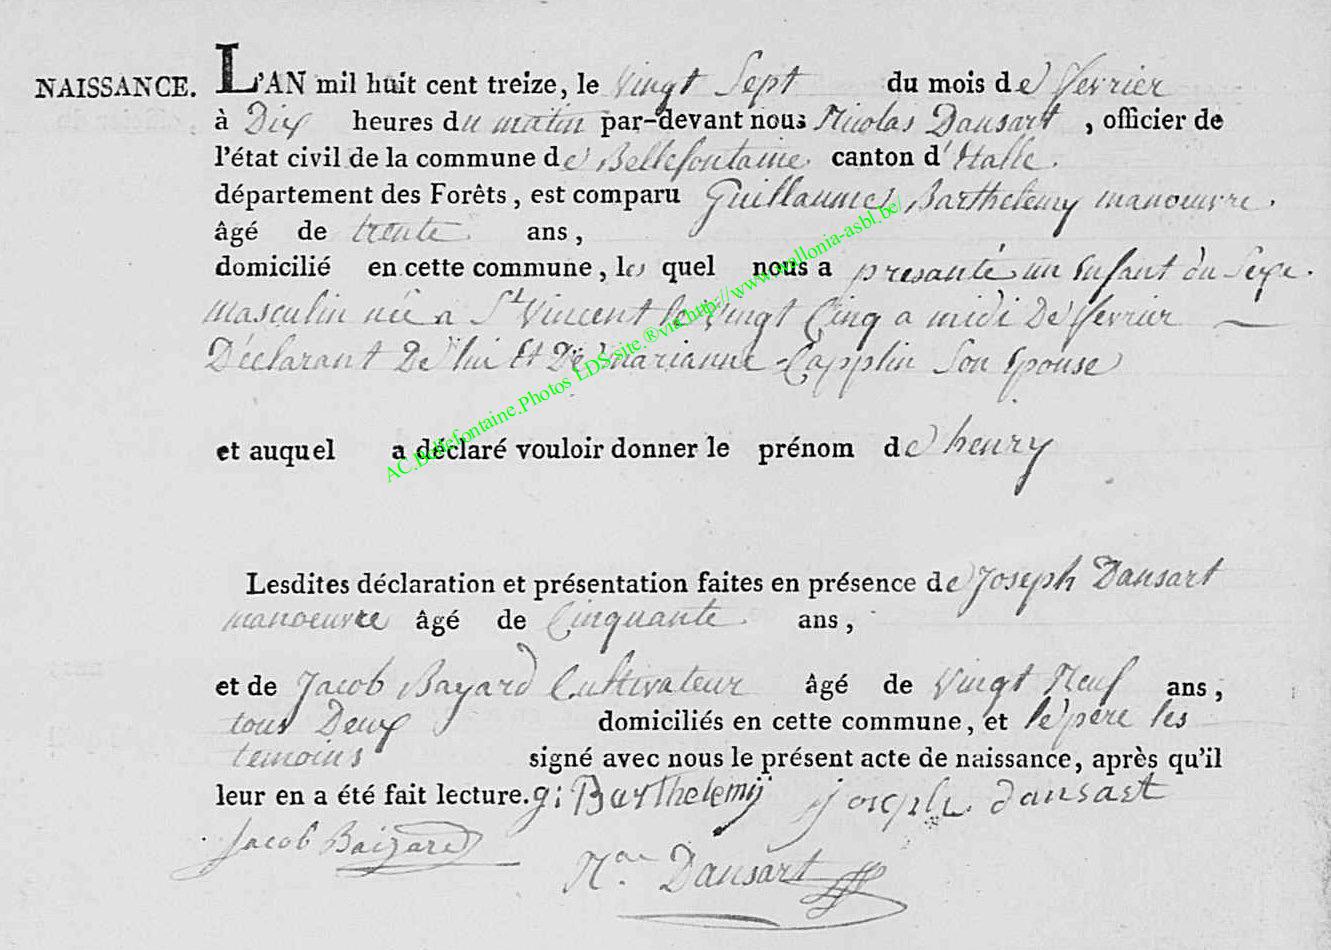 NAISSANCE. L'AN mil huit cent treize, le vingt Sept du mois de fevrier
à Dix heures du matin par-devant nous Nicolas Dansart, officier de
l'état civil de la commune de Bellefontaine canton d'Etalle.
département des Forêts, est comparu Guillaume Barthelemy manoeuvre.
âgé de trente ans,
domicilié en cette commune, lequel nous a presanté un Enfant du Sexe.
masculin née a St Vincent le vingt Cinq a midi De fevrier
Déclarant De lui Et De marianne Capplin Son Epouse
et auquel a déclaré vouloir donner le prénom de henry
Lesdites déclaration et présentation faites en présence de Joseph Dansart
manoeuvre âgé de Cinquante ans,
et de Jacob Bayard Cultivateur âgé de vingt Neuf ans,
tous Deux domiciliés en cette commune, et le père les
temoins signé avec nous le présent acte de naissance, après qu'il
leur en a été fait lecture. g: Barthelemÿ joseph dansart
Jacob Baizard
Nas Dansart
AC.Bellefontaine.Photos LDS site.®via.http://www.wallonia-asbl.be/